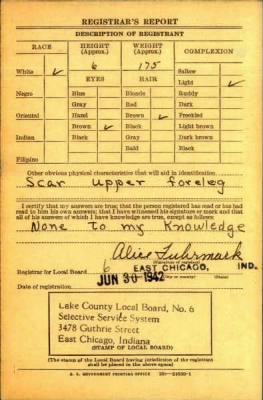 REGISTRAR'S REPORT
DESCRIPTION OF REGISTRANT
RACE HEIGHT (Approx.) WEIGHT (Approx.) COMPLEXION
6 175 Sallow
White ✓ EYES HAIR Light ✓
Negro Blue Blonde Ruddy
Gray Red Dark
Oriental Hazel Brown ✓ Freckled
Brown ✓ Black Light brown
Indian Black Gray Dark brown
Bald Black
Filipino
Other obvious physical characteristics that will aid in identification
Scar upper foreleg
I certify that my answers are true; that the person registered has read or has had
read to him his own answers; that I have witnessed his signature or mark and that
all of his answers of which I have knowledge are true, except as follows:
None to my Knowledge
Alice Fuhrmark
(Signature of registrar)
Registrar for Local Board 6 EAST CHICAGO, IND.
(State)
JUN 30 1942
Date of registration
Lake County Local Board, No. 6
Selective Service System
3478 Guthrie Street
East Chicago, Indiana
(STAMP OF LOCAL BOARD)
(The stamp of the Local Board having jurisdiction of the registrant
shall be placed in the above space)
U. S. GOVERNMENT PRINTING OFFICE